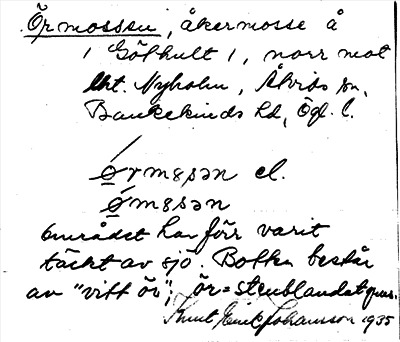 Örmossen, åkermosse å
1 Göthult 1, norr mot
lht. Nyholm, Åtvids sn,
Bankekinds hd, Ögl. l.
Ørmꝏsən el.
Ømꝏsən
Området har förr varit
täckt av sjö. Botten består
av "vitt ör"; ör = stenblandat grus.
Knut Erik Johansson 1935